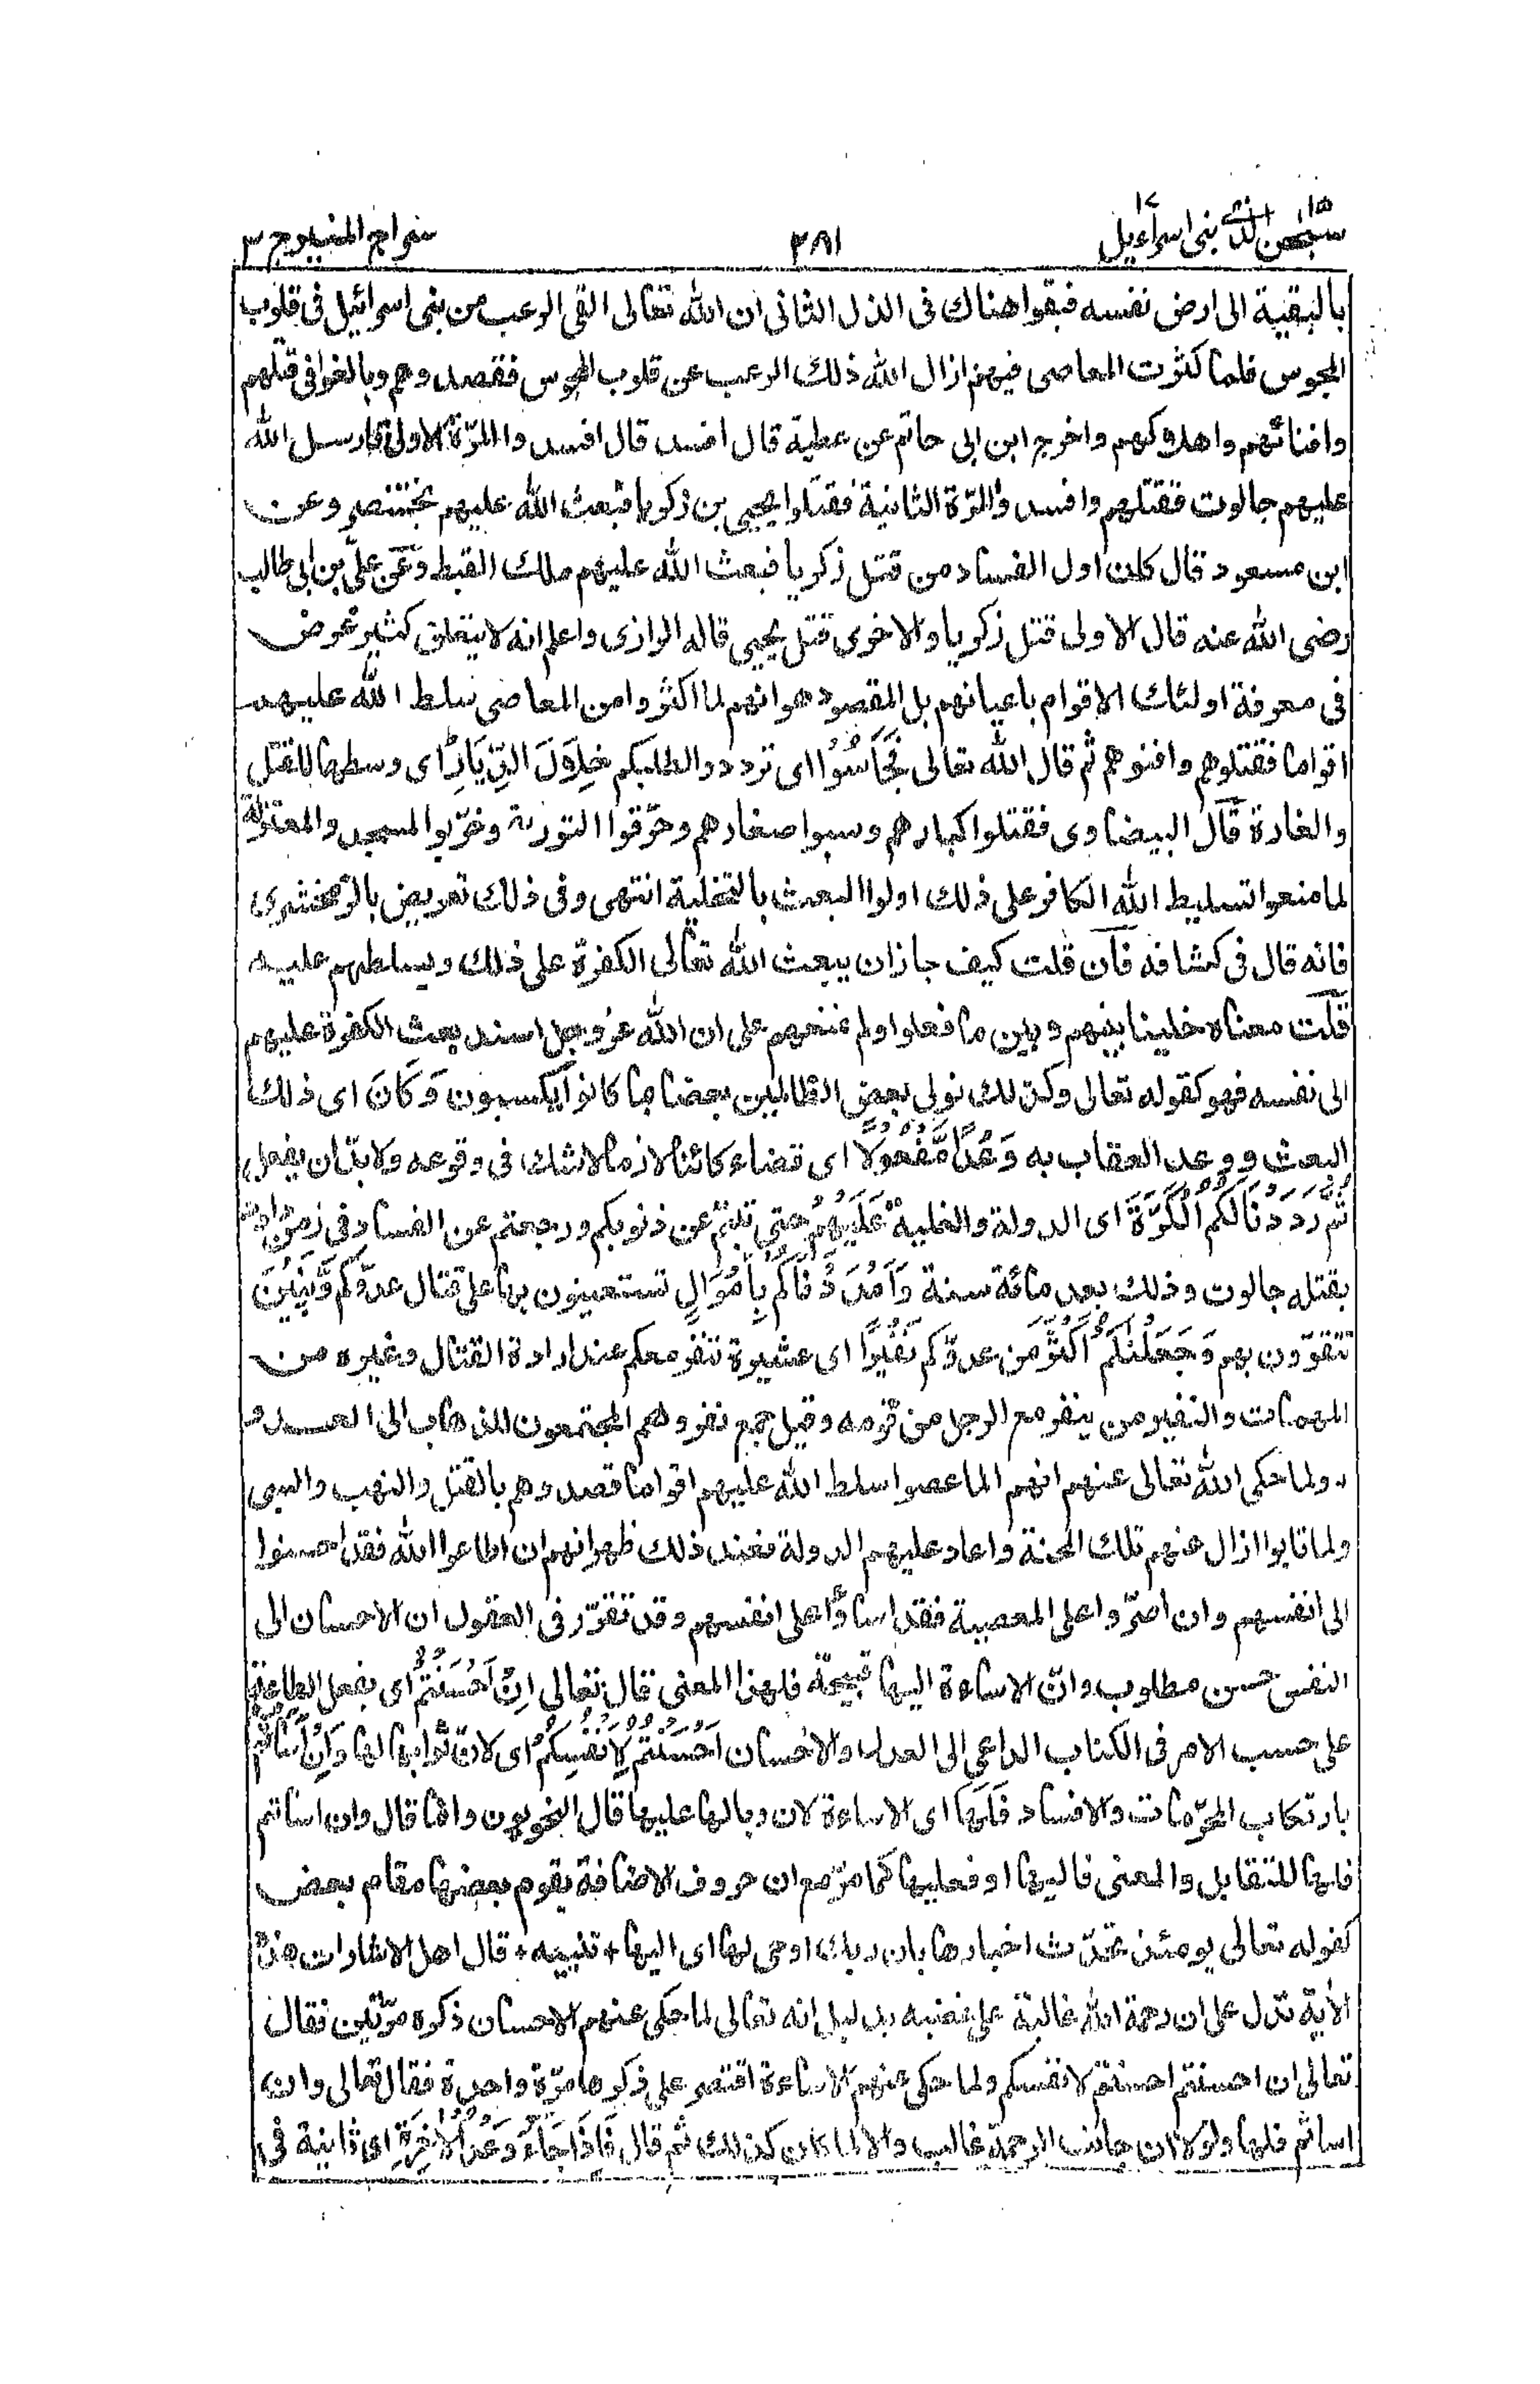 سبحن الذى ١٥ بنى اسراءيل ١٧
٢٨١
سراج المنير ج ٣
بالبقية الى ارض نفسه فبقوا هناك فى الذل الثانى ان الله تعالى القى الرعب من بنى اسرائيل فى قلوب
المجوس فلما كثرت المعاصى فيهم ازال الله ذلك الرعب عن قلوب المجوس فقصدوهم وبالغوا فى قتلهم
وافنائهم واهلاكهم واخرج ابن ابى حاتم عن عطية قال افسد قال افسدوا المرّة الاولى فارسل الله
عليهم جالوت فقتلهم وافسدوا المرّة الثانية فقتلوا يحيى بن زكريا فبعث الله عليهم بختنصر وعن
ابن مسعود قال كان اول الفساد من قتل زكريا فبعث الله عليهم ملك القبط وعن علىّ بن ابى طالب
رضى الله عنه قال الاولى قتل زكريا والاخرى قتل يحيى قاله الرازى واعلم انه لا يتعلق كثير غرض
فى معرفة اولئك الاقوام باعيانهم بل المقصود هو انهم لما اكثروا من المعاصى سلط الله عليهم
اقواما فقتلوهم وافنوهم ثم قال الله تعالى فَجَاسُوْا اى ترددوا لطلبكم خِلٰلَ الدِّيَارِ اى وسطها للقتل
والغارة قال البيضاوى فقتلوا كبارهم وسبوا صغارهم وحرّقوا التورىة وخرّبوا المسجد والمعتزلة
لما منعوا تسليط الله الكافر على ذلك اولوا البعث بالتخلية انتهى وفى ذلك تعريض بالزمخشرى
فانه قال فى كشافه فان قلت كيف جاز ان يبعث الله تعالى الكفرة على ذلك ويسلطهم عليه
قلت معناه خلينا بينهم وبين ما فعلوا ولم نمنعهم على ان الله عز وجل اسند بعث الكفرة عليهم
الى نفسه فهو كقوله تعالى وكذلك نولى بعض الظالمين بعضا بما كانوا يكسبون وَكَانَ اى ذلك
البعث ووعد العقاب به وَعْدًا مَّفْعُوْلًا اى قضاء كائنا لازما لا شك فى وقوعه ولا بدّ ان يفعل
ثُمَّ رَدَدْنَا لَكُمُ الْكَرَّةَ اى الدولة والغلبة عَلَيْهِمْ حتى تبتم عن ذنوبكم ورجعتم عن الفساد فى زمن داود
بقتله جالوت وذلك بعد مائة سنة وَاَمْدَدْنَاكُمْ بِاَمْوَالٍ تستعينون بها على قتال عدوّكم وَّبَنِيْنَ
تتقوّون بهم وَجَعَلْنٰكُمْ اَكْثَرَ من عدوّكم نَفِيْرًا اى عشيرة تنفر معكم عند ارادة القتال وغيره من
المهمات والنفير من ينفر مع الرجل من قومه وقيل جمع نفر وهم المجتمعون للذهاب الى العدو
ولما حكى الله تعالى عنهم انهم لما عصوا سلط الله عليهم اقواما قصدوهم بالقتل والنهب والسبى
ولما تابوا ازال عنهم تلك المحنة واعاد عليهم الدولة فعند ذلك ظهر انهم ان اطاعوا الله فقد احسنوا
الى انفسهم وان اصرّوا على المعصية فقد اساؤا على انفسهم وقد تقرّر فى العقول ان الاحسان الى
النفس حسن مطلوب وانّ الاساءة اليها قبيحة فلهذا المعنى قال تعالى اِنْ اَحْسَنْتُمْ اى بفعل الطاعة
على حسب الامر فى الكتاب الداعى الى العدل والاحسان اَحْسَنْتُمْ لِاَنْفُسِكُمْ اى لانّ ثوابها لها وَاِنْ اَسَاْتُمْ
بارتكاب المحرّمات والافساد فَلَهَا اى الاساءة لان وبالها عليها قال النحويون وانما قال وان اساتم
فلها للتقابل والمعنى فاليها او فعليها كما مرّ مع ان حروف الاضافة يقوم بعضها مقام بعض
كقوله تعالى يومئذ تحدّث اخبارها بان ربك اوحى لها اى اليها + تنبيه + قال اهل الاشارات هذه
الاٰية تدل على ان رحمة الله غالبة على غضبه بدليل انه تعالى لما حكى عنهم الاحسان ذكره مرّتين فقال
تعالى ان احسنتم احسنتم لانفسكم ولما حكى عنهم الاساءة اقتصر على ذكرها مرّة واحدة فقال تعالى وان
اساتم فلها ولولا ان جانب الرحمة غالب والا لما كان كذلك ثم قال فَاِذَا جَآءَ وَعْدُ الْاٰخِرَةِ اى ثانية فى